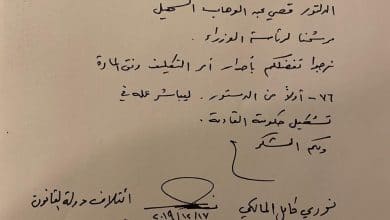 الدكتور قصي عبد الوهاب السهيل
مرشحنا لرئاسة الوزراء.
نرجوا تفضلكم بأصدار أمر التكليف وفق المادة
٧٦ - أولاً من الدستور. ليباشر عمله في
تشكيل حكومته القادمة.
ولكم الشكر
نوري كامل المالكي
ائتلاف دولة القانون
٢٠١٩/١٢/١٧